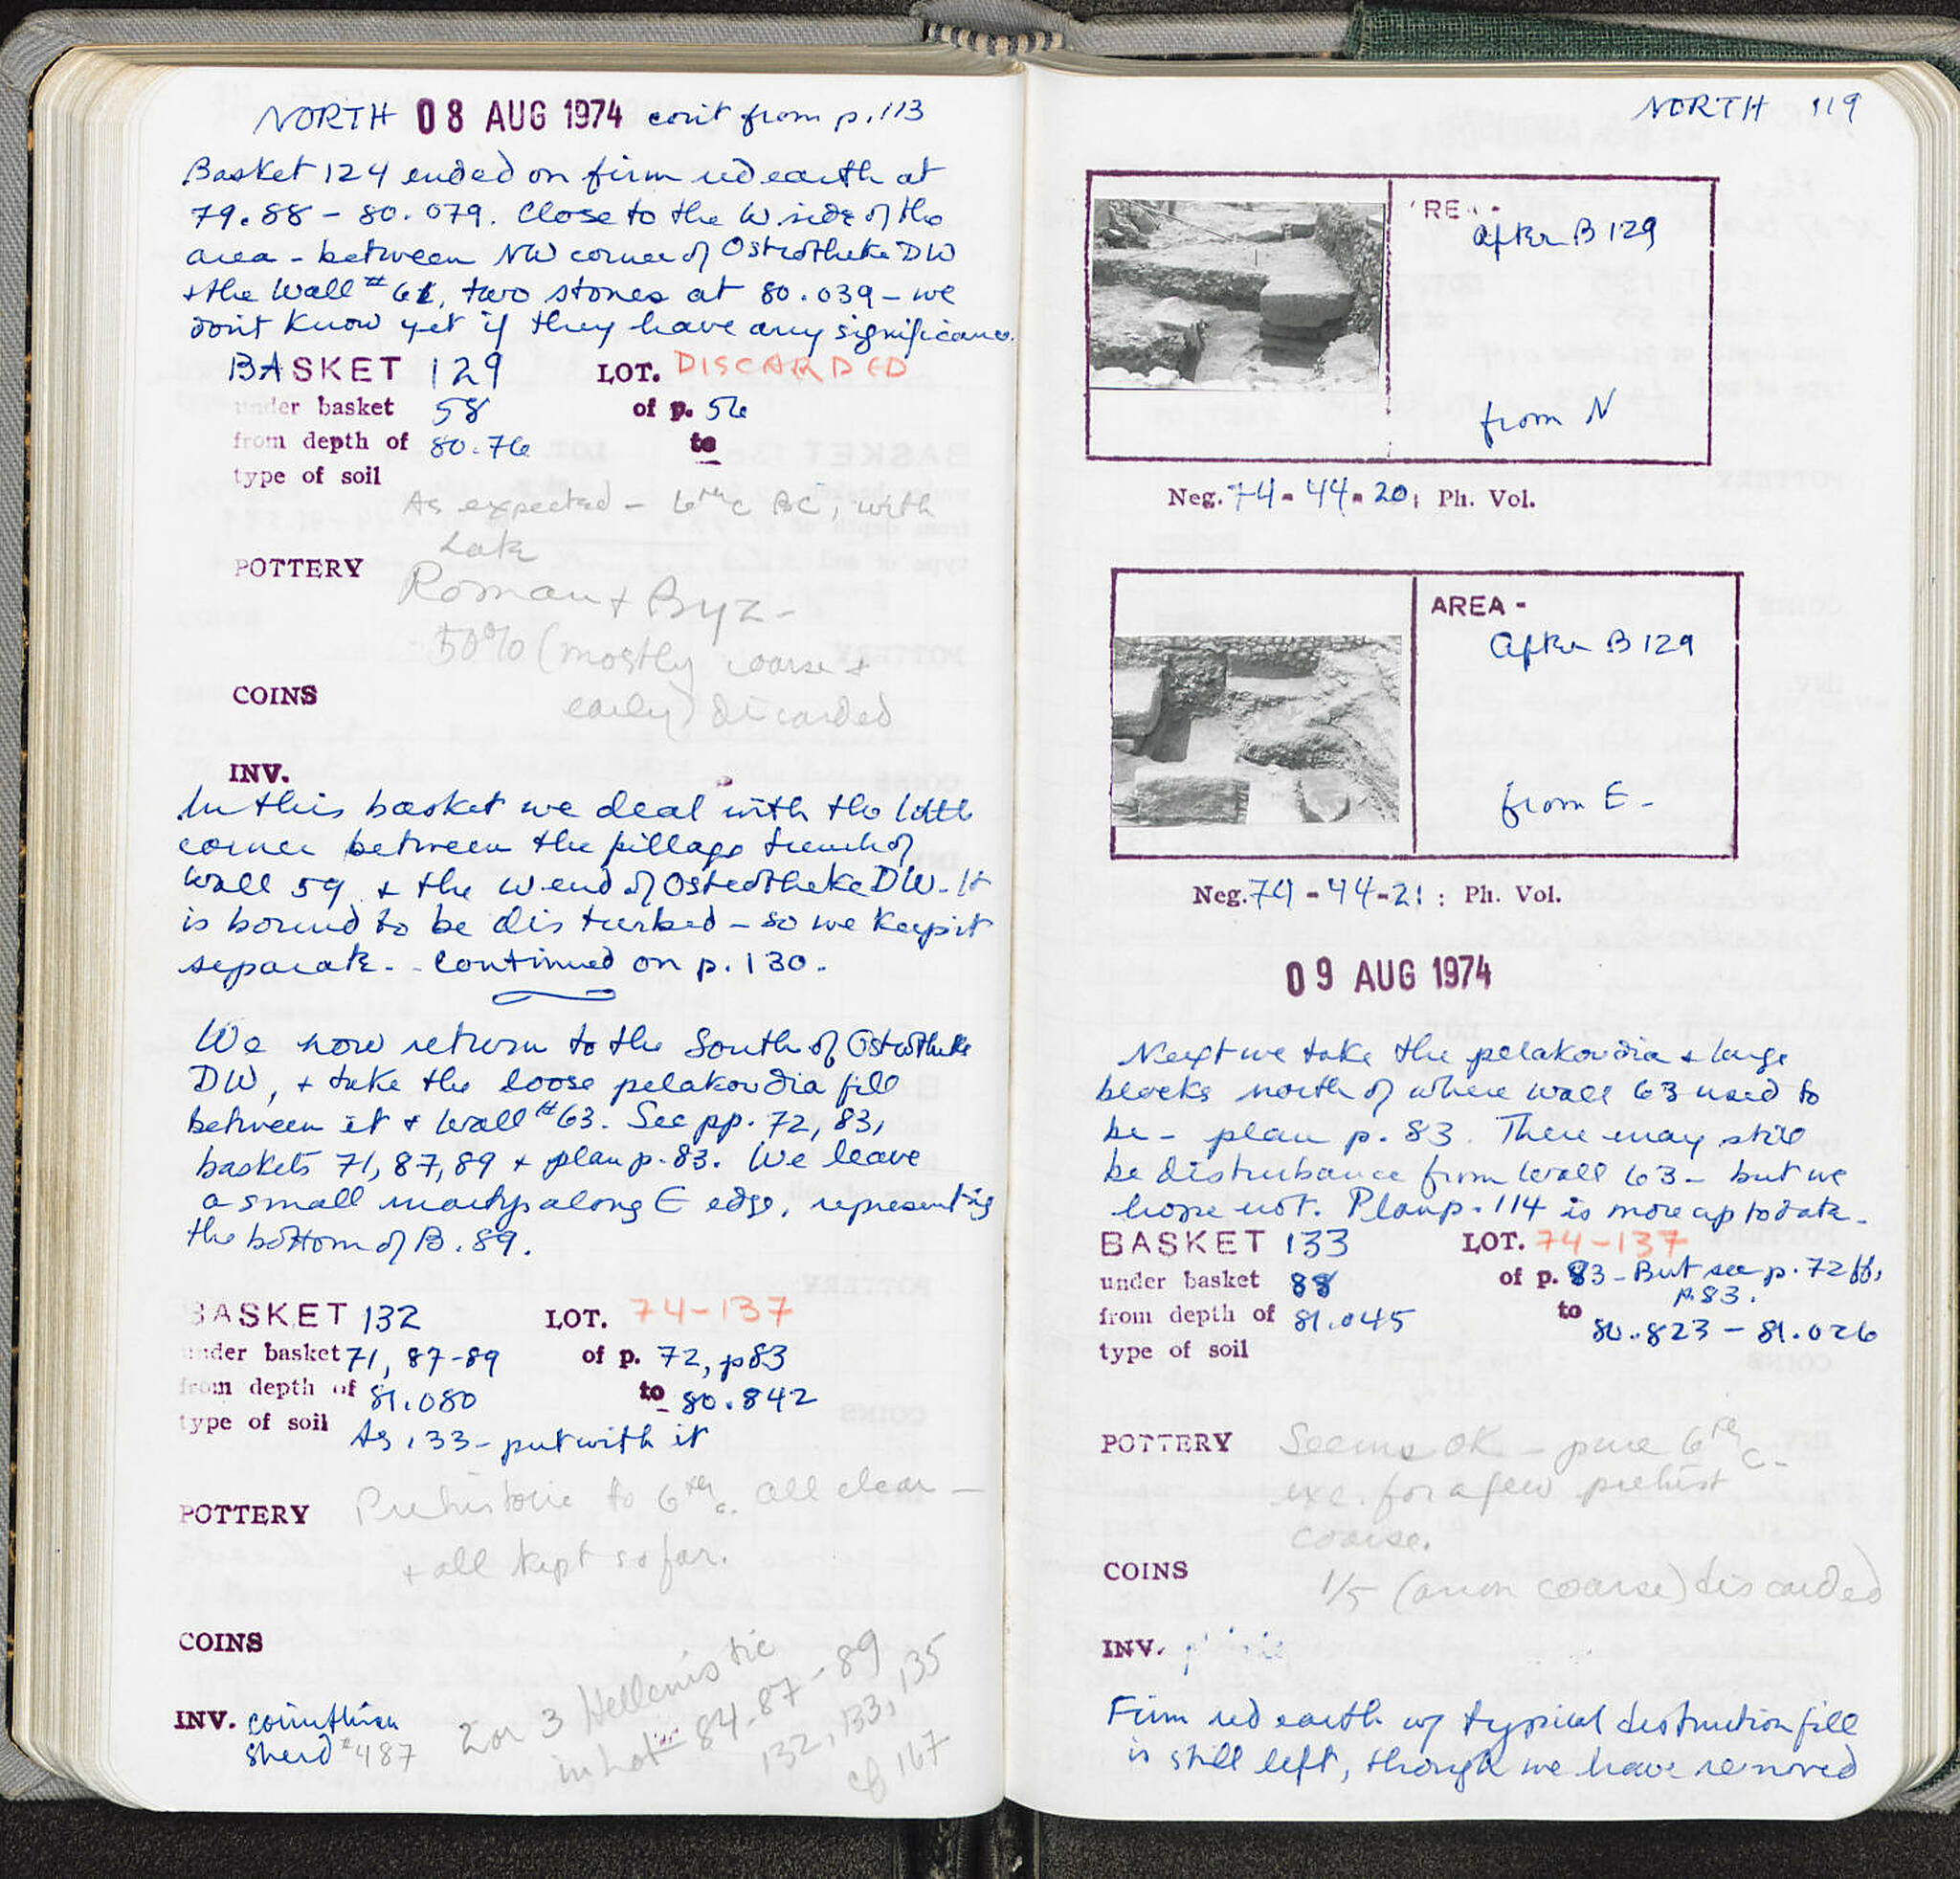 NORTH 08 AUG 1974 con't from p. 113
Basket 124 ended on firm red earth at
79.88 - 80.079. Close to the W side of the
area - between NW corner of Osteotheke DW
+ the Wall #61, two stones at 80.039 - we
don't know yet if they have any significance.
BASKET 129 LOT. DISCARDED
under basket 58 of p. 56
from depth of 80.76 to
type of soil
As expected - 6th c BC, with
Late
POTTERY Roman + Byz -
50% (mostly coarse +
COINS early) discarded
INV.
In this basket we deal with the little
corner between the pillage trench of
Wall 59 + the W end of Osteotheke DW. It
is bound to be disturbed - so we keep it
separate. - Continued on p. 130.
We now return to the South of Osteotheke
DW, + take the loose pelakoudia fill
between it + Wall #63. See pp. 72, 83,
baskets 71, 87, 89 + plan p. 83. We leave
a small martyr along E edge, representing
the bottom of B. 89.
BASKET 132 LOT. 74-137
under basket 71, 87-89 of p. 72, p83
from depth of 81.080 to 80.842
type of soil As 133 - put with it
POTTERY Prehistoric to 6th c. All clear -
+ all kept so far.
COINS
INV. corinthian
sherd #487
2 or 3 Hellenistic
in lot 84. 87-89
132, 133, 135
cf 167
NORTH 119
AREA -
After B 129
from N
Neg. 74-44-20; Ph. Vol.
AREA -
After B 129
from E -
Neg. 74-44-21: Ph. Vol.
09 AUG 1974
Next we take the pelakoudia + large
blocks north of where Wall 63 used to
be - plan p. 83. There may still
be disturbance from Wall 63 - but we
hope not. Plan p. 114 is more up to date.
BASKET 133 LOT. 74-137
under basket 88 of p. 83 - But see p. 72 ff,
p. 83.
from depth of 81.045 to 80.823 - 81.026
type of soil
POTTERY Seems OK - pure 6th c -
exc. for a few prehist
coarse.
COINS 1/5 (a non coarse) discarded
INV.
Firm red earth w/ typical destruction fill
is still left, though we have removed